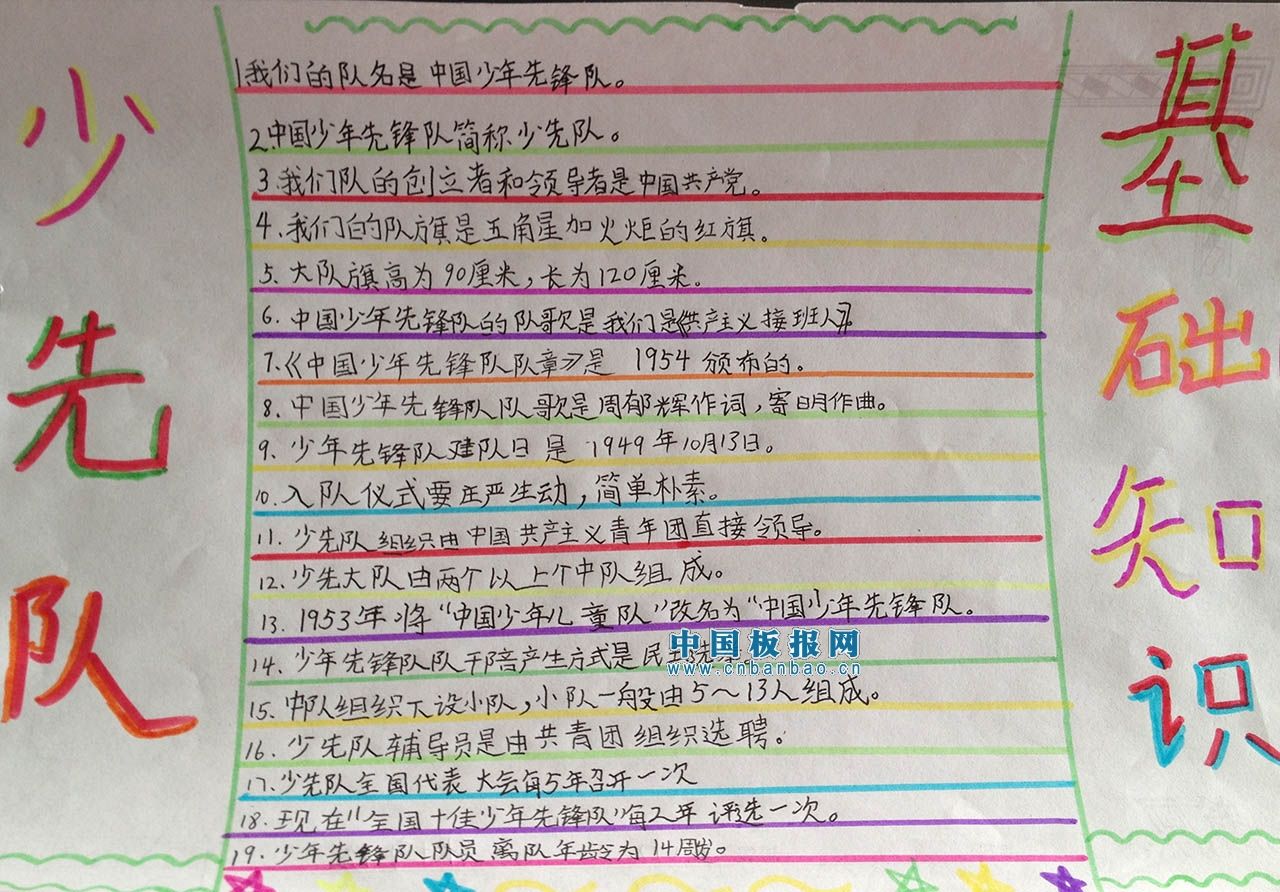 少先队
基础知识
1我们的队名是中国少年先锋队。
2.中国少年先锋队简称少先队。
3.我们队的创立者和领导者是中国共产党。
4.我们的队旗是五角星加火炬的红旗。
5.大队旗高为90厘米,长为120厘米。
6.中国少年先锋队的队歌是我们是《共产主义接班人》
7.《中国少年先锋队队章》是 1954 颁布的。
8.中国少年先锋队队歌是周郁辉作词,寄明作曲。
9.少年先锋队建队日是 1949年10月13日。
10.入队仪式要庄严生动,简单朴素。
11.少先队组织由中国共产主义青年团直接领导。
12.少先大队由两个以上个中队组成。
13.1953年将“中国少年儿童队”改名为“中国少年先锋队。
14.少年先锋队队干部产生方式是民主选
15.中队组织下设小队,小队一般由5~13人组成。
16.少先队辅导员是由共青团组织选聘。
17.少先队全国代表大会每5年召开一次
18.现在“全国十佳少年先锋队”每2年评选一次。
19.少年先锋队队员离队年龄为14周岁。
中国板报网
www.cnbanbao.cn